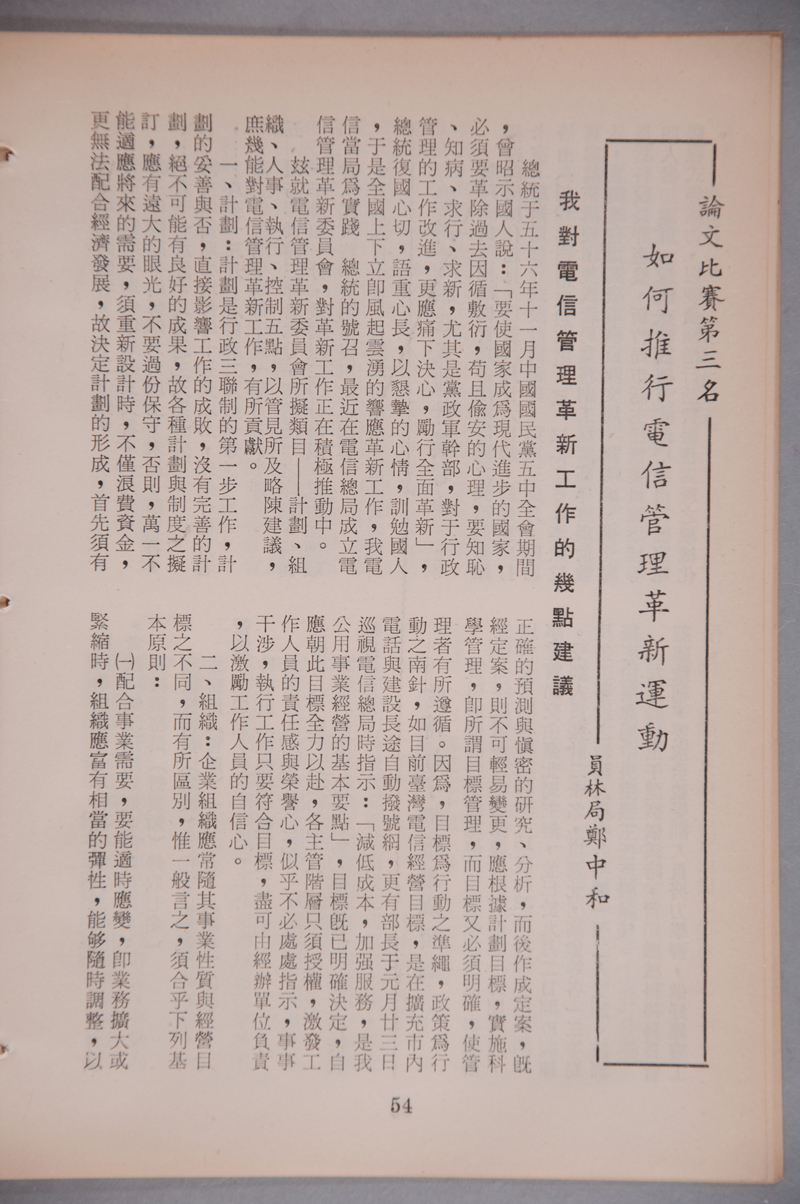 論文比賽第三名
如何推行電信管理革新運動
員林局鄭中和
我對電信管理革新工作的幾點建議
總統于五十六年十一月中國國民黨五中全會期間
，曾昭示國人說：「要使國家成爲現代進步的國家，
必須要革除過去因循敷衍，苟且偸安的心理，要知恥
、知病、求行、求新，尤其是黨政軍幹部，對于行政
管理的工作改進，更應痛下決心，勵行全面革新」，
總統復國心切，語重心長，以懇摯的心情，訓勉國人
，于是全國上下立卽風起雲湧的響應革新工作，我電
信當局爲實踐　總統的號召，最近在電信總局成立電
信管理革新委員會，對革新工作正在積極推動中。
玆就電信管理革新委員會所擬類目——計劃、組
織、人事、執行、控制五點，以管見所及略陳建議，
庶幾能對電信管理革新工作，有所貢獻。
一、計劃：計劃是行政三聯制的第一步工作，計
劃的妥善與否，直接影響工作的成敗，沒有完善的計
劃，絕不可能有良好的成果，故各種計劃與制度之擬
訂，應有遠大的眼光，不要過份保守，否則，萬一不
能適應將來的需要，須重新設計時，不僅浪費資金，
更無法配合經濟發展，故決定計劃的形成，首先須有
正確的預測與愼密的研究、分析，而後作成定案，旣
經定案，則不可輕易變更，應根據計劃目標，實施科
學管理，卽所謂目標管理，而目標又必須明確，使管
理者有所遵循。因爲，目標爲行動之準繩，政策爲行
動之南針，如目前臺灣電信經營目標，是在擴充市內
電話與建設長途自動撥號網，更有部長于元月廿三日
巡視電信總局時指示：「減低成本，加强服務，是我
公用事業經營的基本要點」，目標旣已明確決定，自
應朝此目標全力以赴，各主管階層只須授權，激發工
作人員的責任感與榮譽心，似乎不必處處指示，事事
干涉，執行工作只要符合目標，盡可由經辦單位負責
，以激勵工作人員的自信心。
二、組織：企業組織應常隨其事業性質與經營目
標之不同，而有所區別，惟一般言之，須合乎下列基
本原則：
㈠配合事業需要，要能適時應變，卽業務擴大或
緊縮時，組織應富有相當的彈性，能够隨時調整，以
54